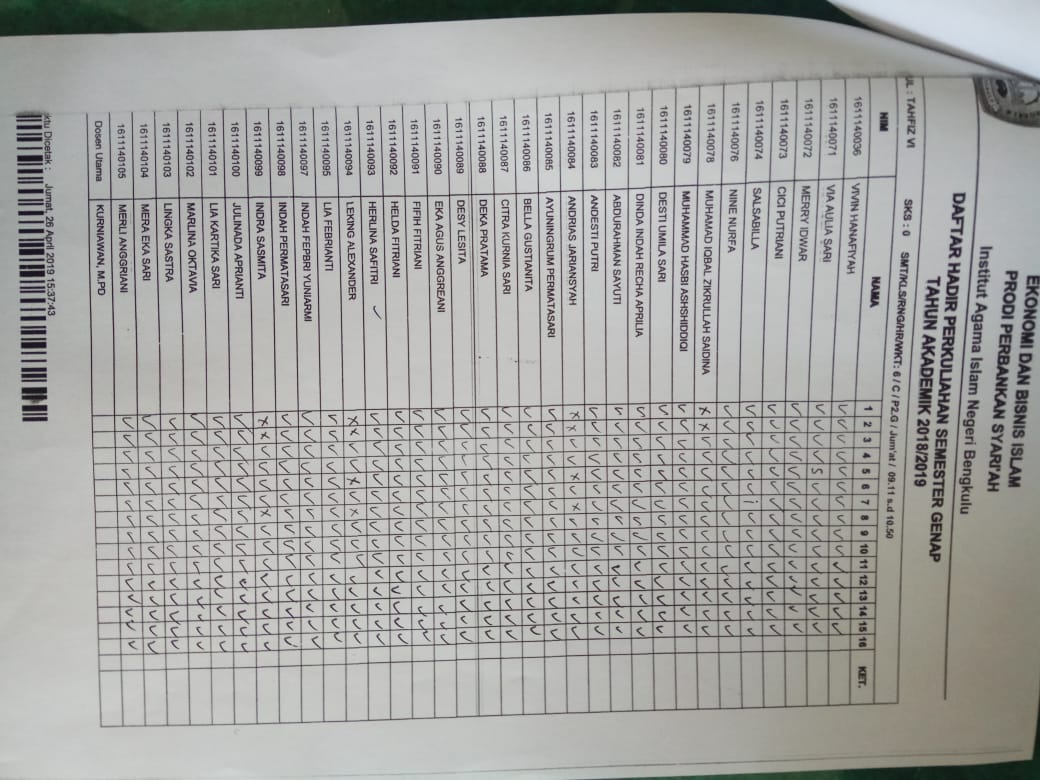 EKONOMI DAN BISNIS ISLAM
PRODI PERBANKAN SYARI'AH
Institut Agama Islam Negeri Bengkulu
DAFTAR HADIR PERKULIAHAN SEMESTER GENAP
TAHUN AKADEMIK 2018/2019
UL : TAHFIZ VI SKS : 0 SMT/KLS/RNG/HR/WKT: 6 / C / P2.G / Jum'at / 09.11 s.d 10.50
NIM NAMA 1 2 3 4 5 6 7 8 9 10 11 12 13 14 15 16 KET.
1611140036 VIVIN HANAFIYAH
1611140071 VIA AULIA SARI
1611140072 MERRY IDWAR
1611140073 CICI PUTRIANI
1611140074 SALSABILLA
1611140076 NINE NURFA
1611140078 MUHAMAD IQBAL ZIKRULLAH SAIDINA
1611140079 MUHAMMAD HASBI ASHSHIDDIQI
1611140080 DESTI UMILA SARI
1611140081 DINDA INDAH RECHA APRILIA
1611140082 ABDURAHMAN SAYUTI
1611140083 ANDESTI PUTRI
1611140084 ANDRIAS JARIANSYAH
1611140085 AYUNINGRUM PERMATASARI
1611140086 BELLA GUSTIANITA
1611140087 CITRA KURNIA SARI
1611140088 DEKA PRATAMA
1611140089 DESY LESITA
1611140090 EKA AGUS ANGGREANI
1611140091 FIFIH FITRIANI
1611140092 HELDA FITRIANI
1611140093 HERLINA SAFITRI
1611140094 IEKING ALEXANDER
1611140095 LIA FEBRIANTI
1611140097 INDAH FEPBRI YUNIARMI
1611140098 INDAH PERMATASARI
1611140099 INDRA SASMITA
1611140100 JULINADA APRIANTI
1611140101 LIA KARTIKA SARI
1611140102 MARLINA OKTAVIA
1611140103 LINGKA SASTRA
1611140104 MERA EKA SARI
1611140105 MERLI ANGGRIANI
Dosen Utama KURNIAWAN, M.PD
ktu Dicetak : Jumat, 26 April 2019 15:37:43